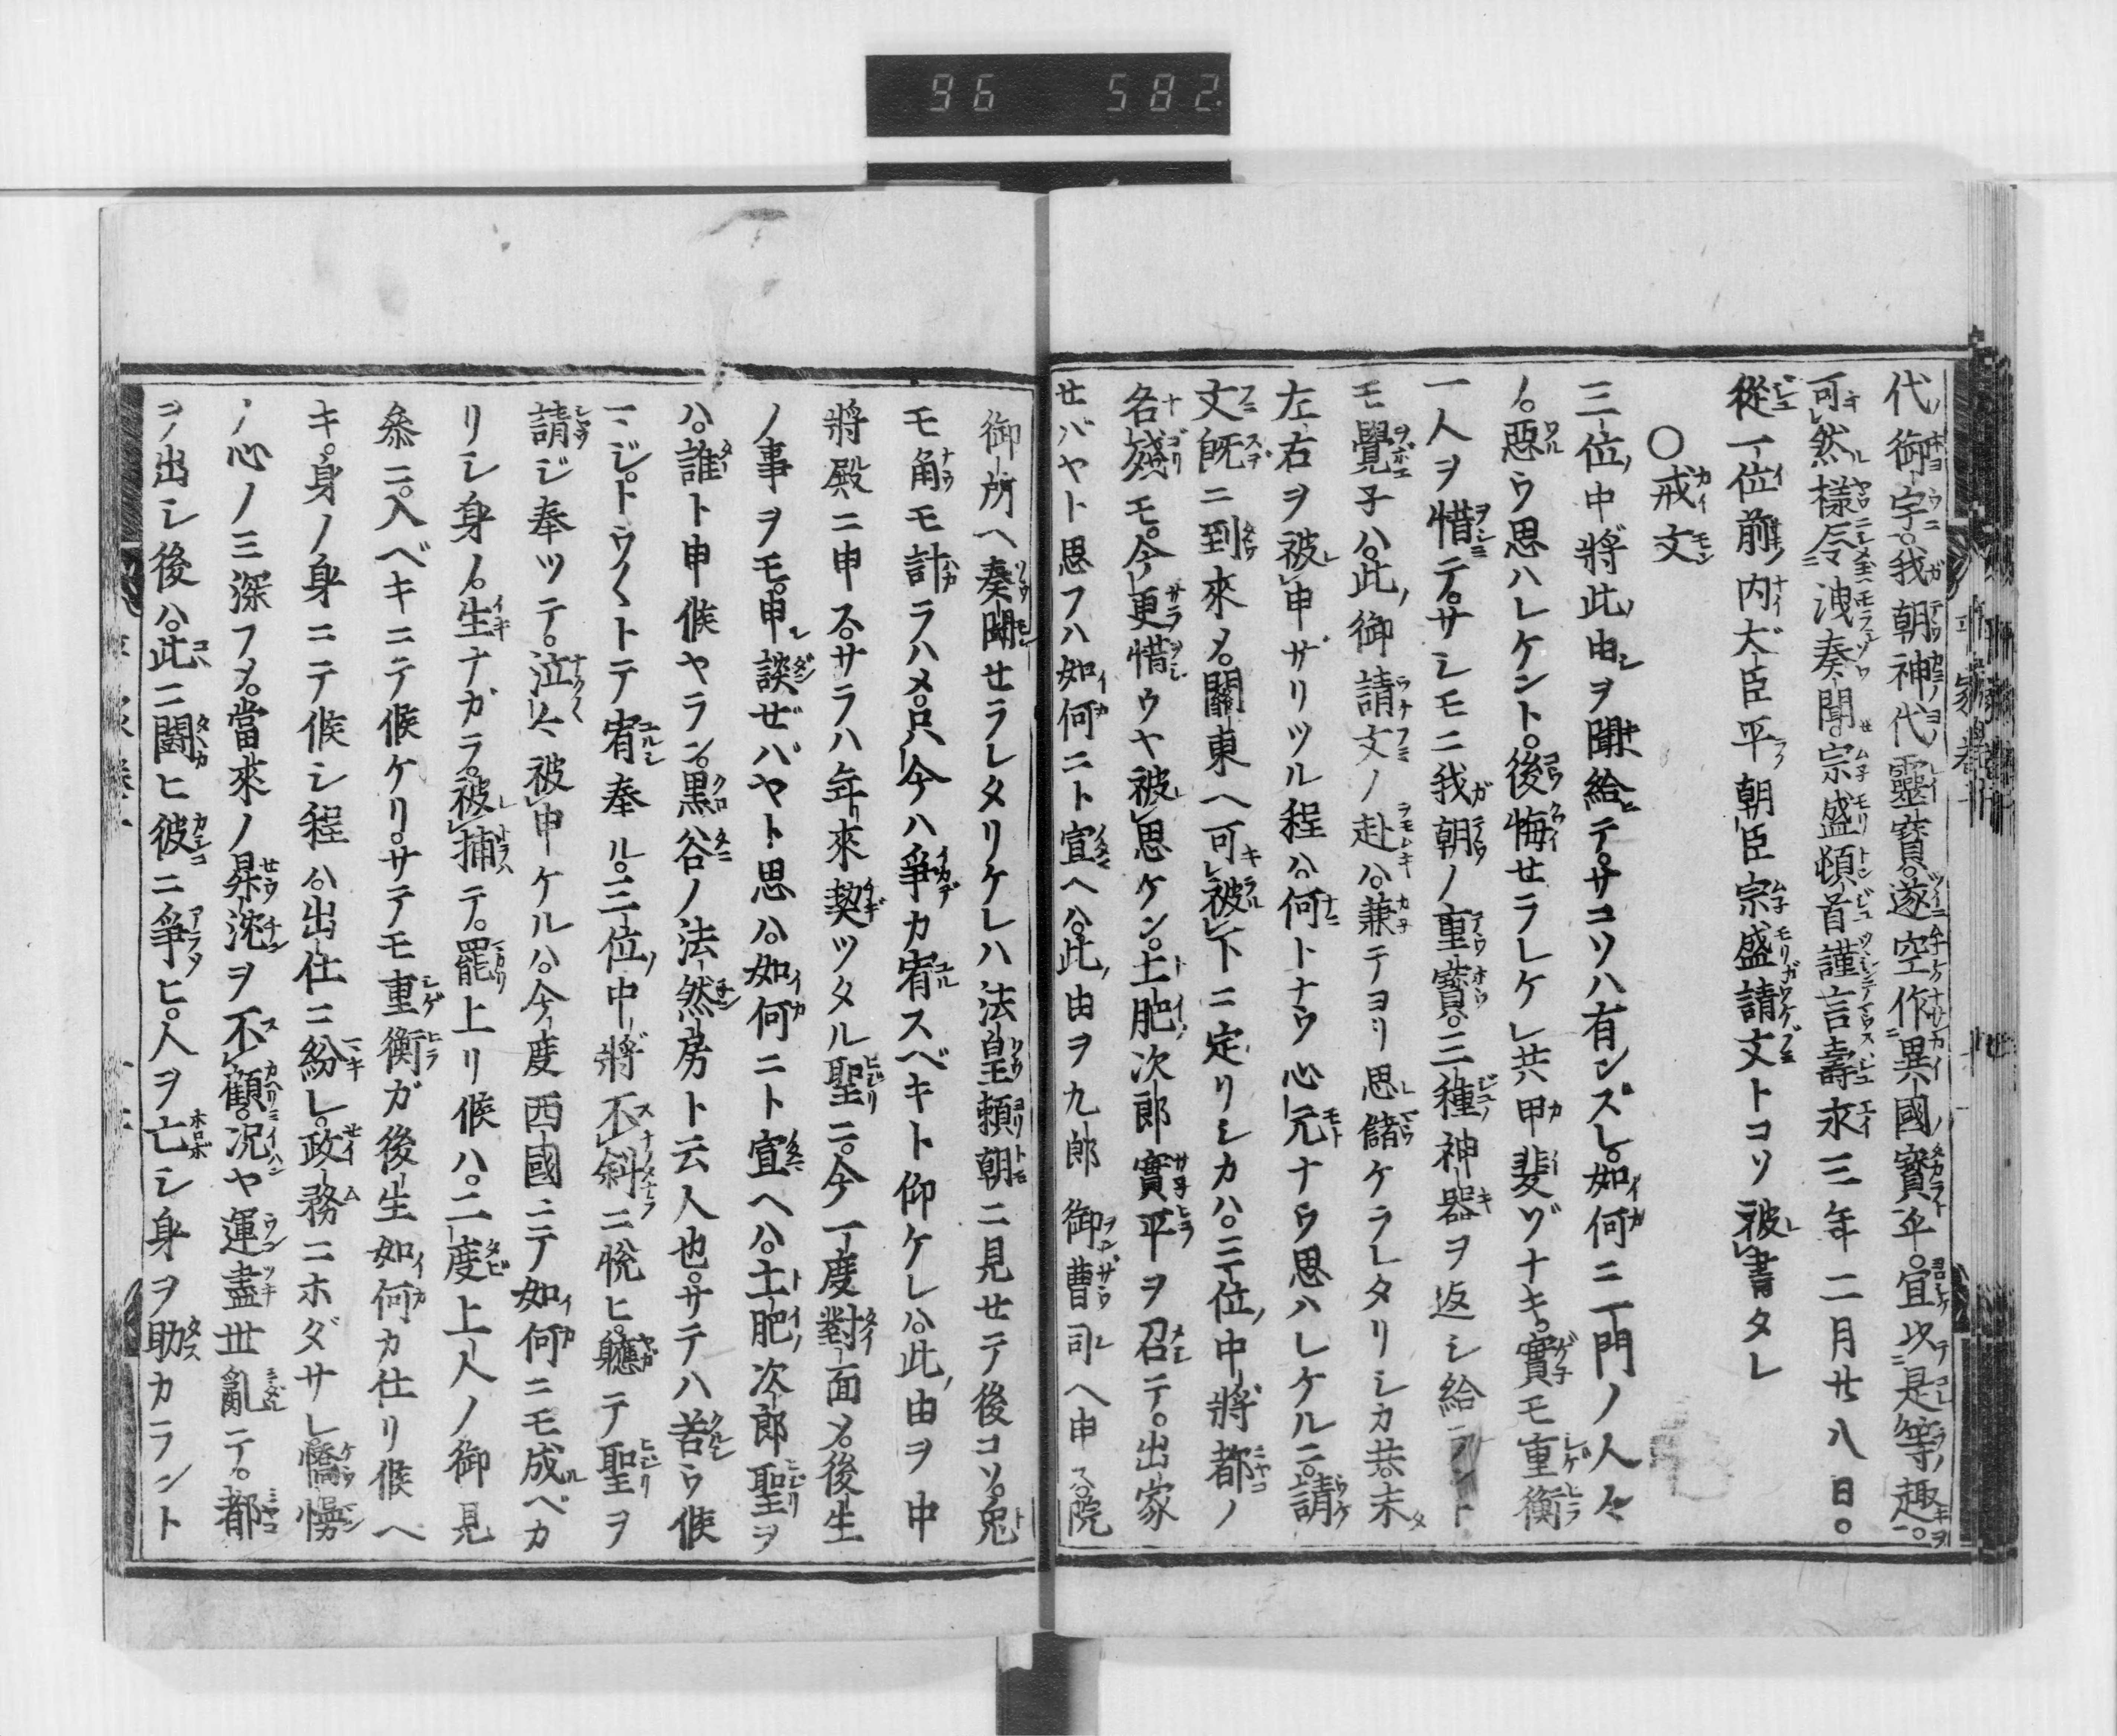 96 582.
代御宇。我朝神代靈寶。遂空作異國寶乎。宜以是等趣。
可然樣令洩奏聞。宗盛頓首謹言壽永三年二月廿八日。
從一位前内大臣平朝臣宗盛請文トコソ被書タレ
○戒文
三位中將此由ヲ聞給テ。サコソハ有ンズレ。如何ニ一門ノ人々
ノ。惡ウ思ハレケント。後悔セラレケレ共甲斐ゾナキ。實モ重衡
一人ヲ惜テ。サシモニ我朝ノ重寶。三種神器ヲ返シ給ラント
モ覺子ハ。此御請文ノ赴ハ。兼テヨリ思儲ケラレタリシカ共。未
左右ヲ被申ザリツル程ハ。何トナウ心元ナウ思ハレケルニ。請
文既ニ到來メ。關東ヘ可被下ニ定リシカハ。三位中將都ノ
名殘モ。今更惜ウヤ被思ケン。土肥次郎實平ヲ召テ。出家
セバヤト思フハ如何ニト宣ヘハ。此由ヲ九郎御曹司ヘ申ス。院
御所ヘ奏聞セラレタリケレハ法皇頼朝ニ見セテ後コソ。兔
モ角モ計ラハメ。只今ハ爭カ宥スベキト仰ケレハ。此由ヲ中
將殿ニ申ス。サラハ年來契ツタル聖ニ。今一度對面メ。後生
ノ事ヲモ。申談ゼバヤト思ハ。如何ニト宣ヘハ。土肥次郎聖ヲ
ハ。誰ト申候ヤラン。黒谷ノ法然房ト云人也。サテハ苦ウ候
マジ。トウ〱トテ宥奉ル。三位中將不斜ニ悦ヒ。軈テ聖ヲ
請ジ奉ツテ。泣々被申ケルハ。今度西國ニテ如何ニモ成ベカ
リシ身ノ。生ナガラ。被捕テ。罷上リ候ハ。二度上人ノ御見
參ニ。入ベキニテ候ケリ。サテモ重衡ガ後生如何カ仕リ候ヘ
キ。身ノ身ニテ候シ程ハ。出仕ニ紛レ。政務ニホダサレ憍慢
ノ心ノミ深フメ。當來ノ昇沈ヲ不顧。况ヤ運盡世亂テ。都
ヲ出シ後ハ。此ニ鬪ヒ彼ニ爭ヒ。人ヲ亡シ身ヲ助カラント